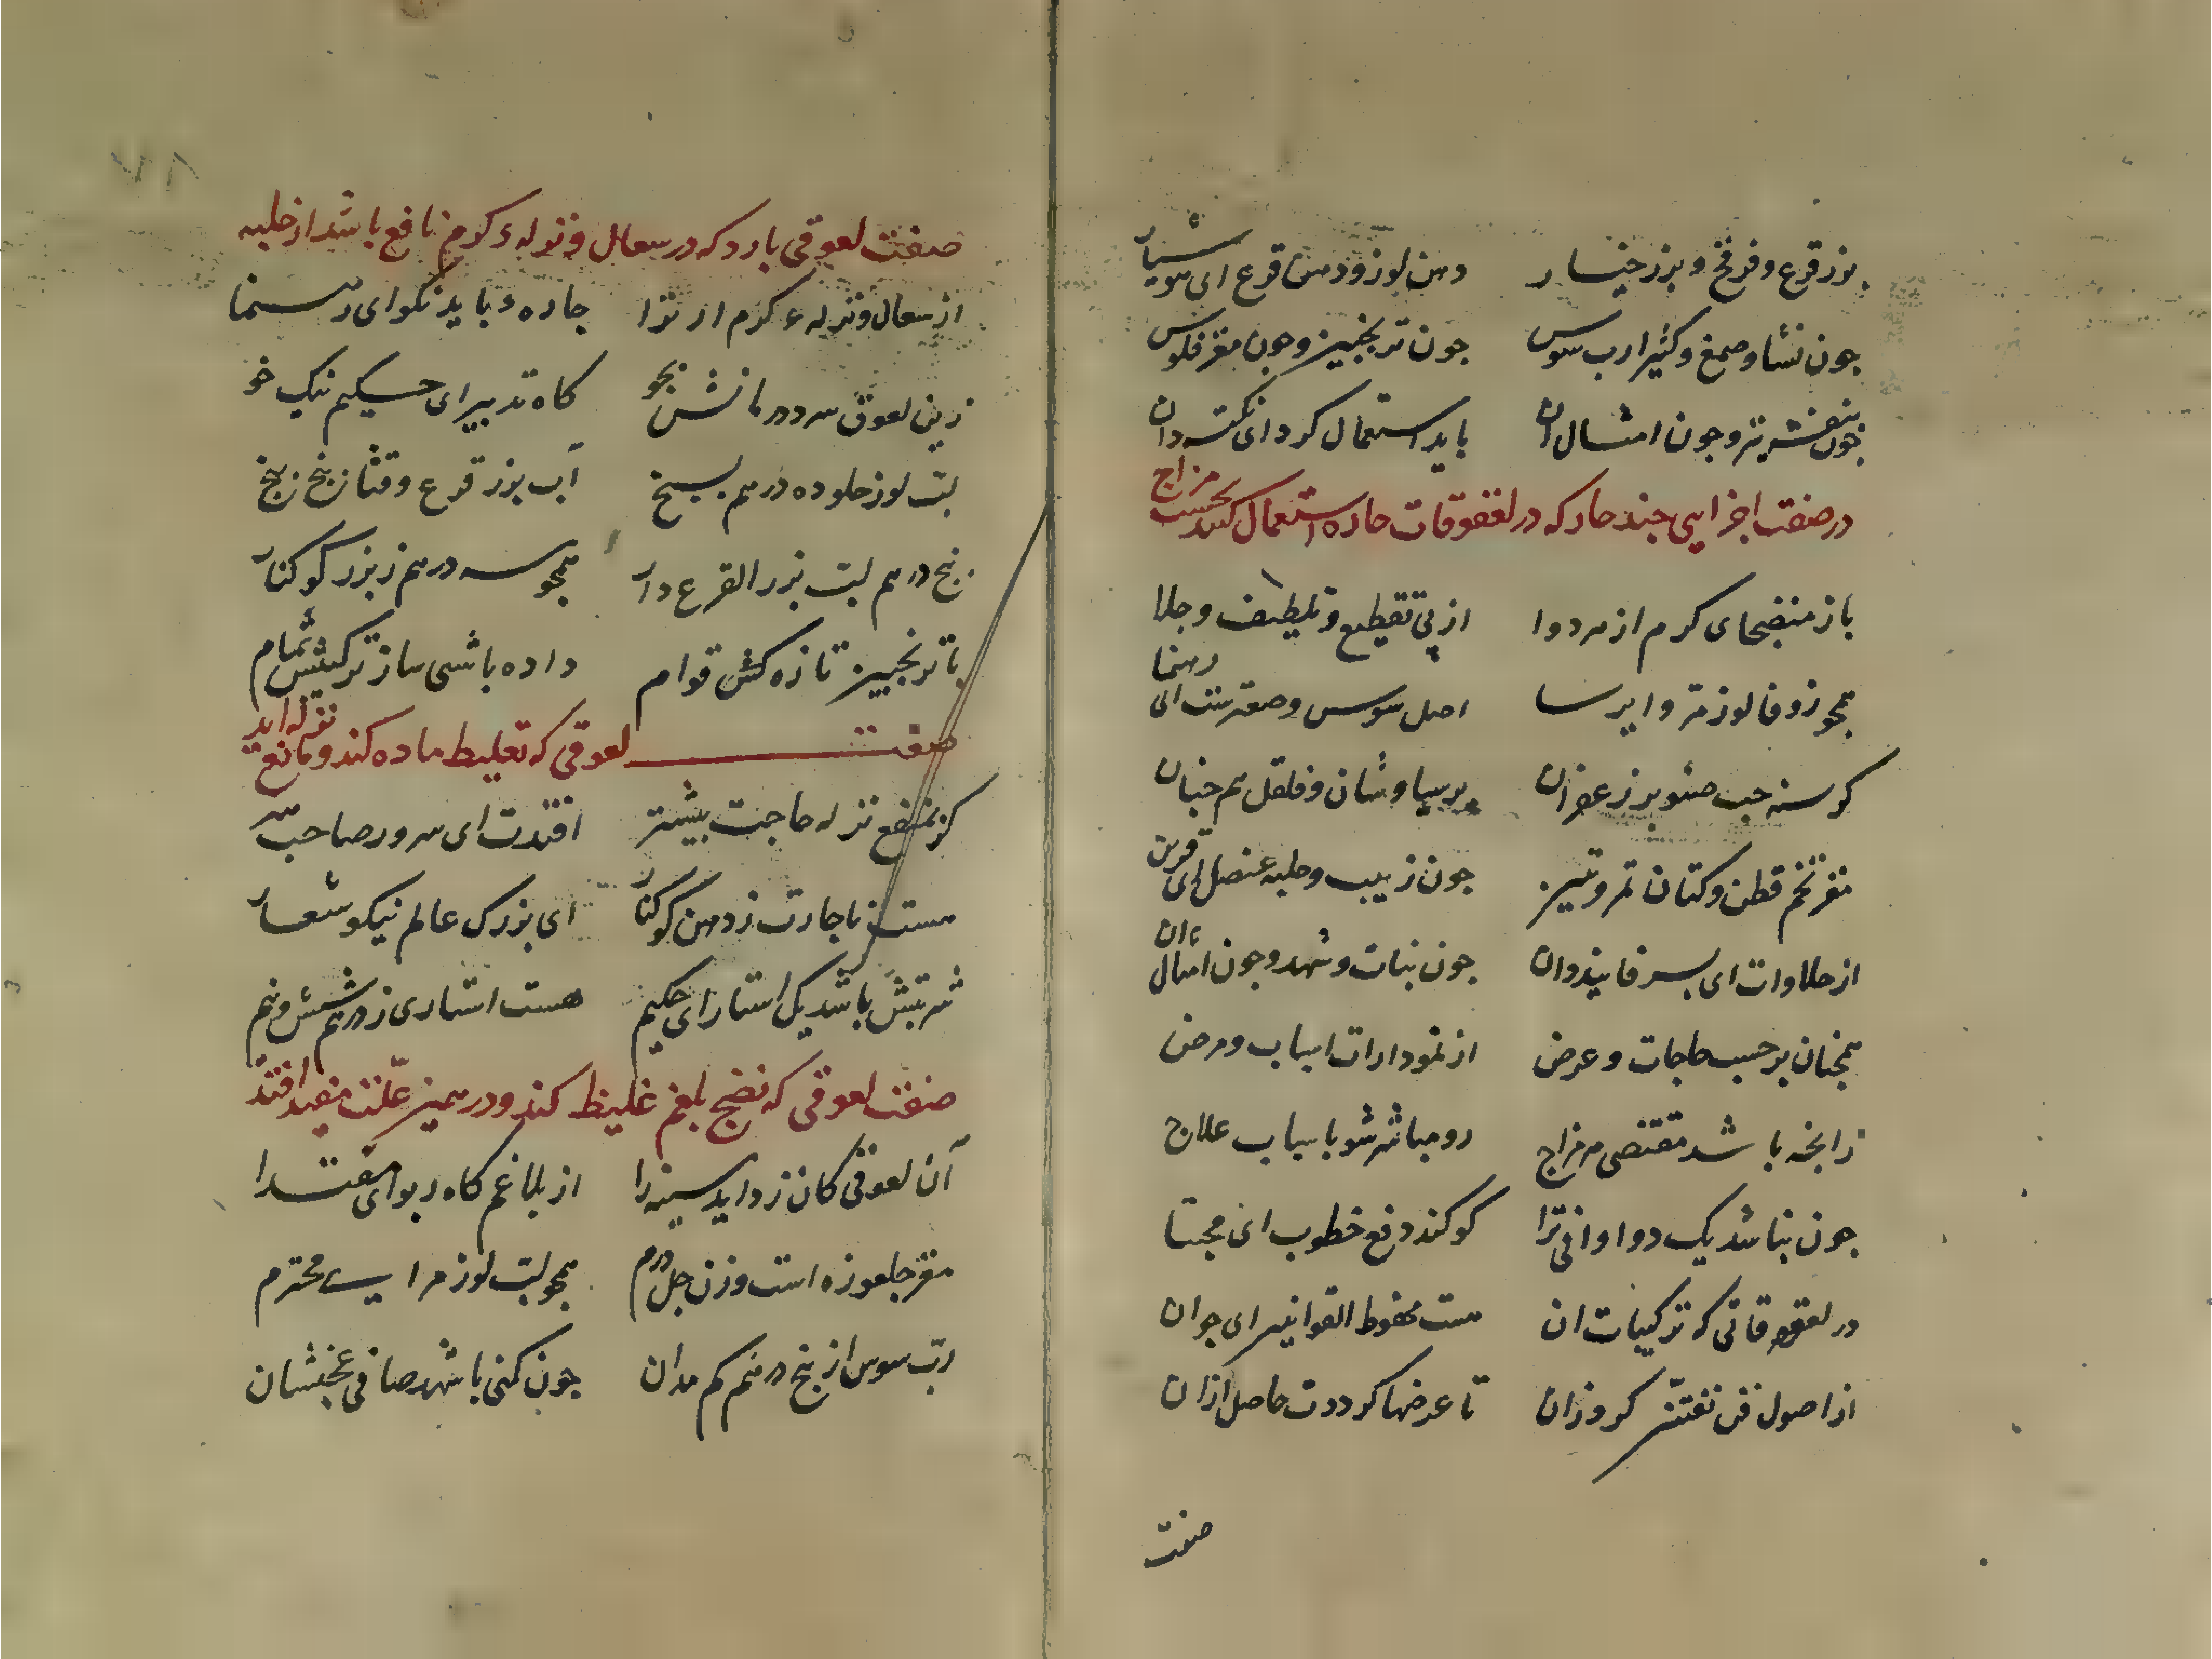 بزر قرع و فرفخ و بزر خیار دهن لوز و دهن قرع ای هوشیار
چون نشا و صمغ و کثیرا رب سوس چون ترنجبین و چون مغز فلوس
چون بنفشه نیز و چون امثال ان باید استعمال کرد ای نکته دان
در صفت اجزایی چند حار که در لعوقات حاره استعمال کنند بحسب مزاج
باز منضجهای کرم از هر دوا از پی تقطیع و تلطیف و جلا
همچو زوفا لوز مر و ایرسا اصل سوس و صعترست ای رهنما
کرسنه حب صنوبر زعفران پرسیاوشان و فلفل هم چنان
مغز تخم قطن و کتان تمر و تین چون زبیب و حلبه عنصل ای قرین
از حلاوات ای پسر فانیذ دان چون نبات و شهد و چون امثال ان
همچنان بر حسب حاجات و عرض از نمودارات اسباب و مرض
زانچه باشد مقتضی هر مزاج رو مباشر شو باسباب علاج
چون نباشد یک دوا وافی ترا کو کند دفع خطوب ای مجتبا
در لعوقاتی که ترکیبات ان هست محفوظ القوانین ای جوان
از اصول فن تفتیش کر وزان تا عرضها کرددت حاصل ازان
صفت
صفت لعوقی بارد که در سعال و نزله ء کرم نافع باشد از حلبه
از سعال و نزله ء کرم ار ترا چاره ء باید نکو ای رهنما
زین لعوق سرد درمانش بجو کاه تدبیر ای حکیم نیک خو
لب لوز حلو ده درهم بسنج آب بزر قرع و قثا زنج زنج
پنج درهم لب بزر القرع دار همچو سه درهم ز بزر کوکنار
با ترنجبین تازه کش قوام داده باشی ساز ترکیبش تمام
صفت لعوقی که تغلیظ ماده کند و مانع نزله اید
کر بمنع نزله حاجت بیشتر افتدت ای سرور صاحب
هست ناچارت ز دهن کوکنار ای بزرک عالم نیکو شعار
شربتش باشد یک استار ای حکیم هست استاری ز درهم شش و نیم
صفت لعوقی که نضج بلغم غلیظ کند و در همین علت مفید افتد
آن لعوقی کان زداید سینه را از بلاغم کاه ربو ای مقتدا
مغز جلغوزه است وزن چل درم همچو لب لوز مر ای محترم
رب سوس از پنج درهم کم مدان چون کنی با شهد صافی عجنشان